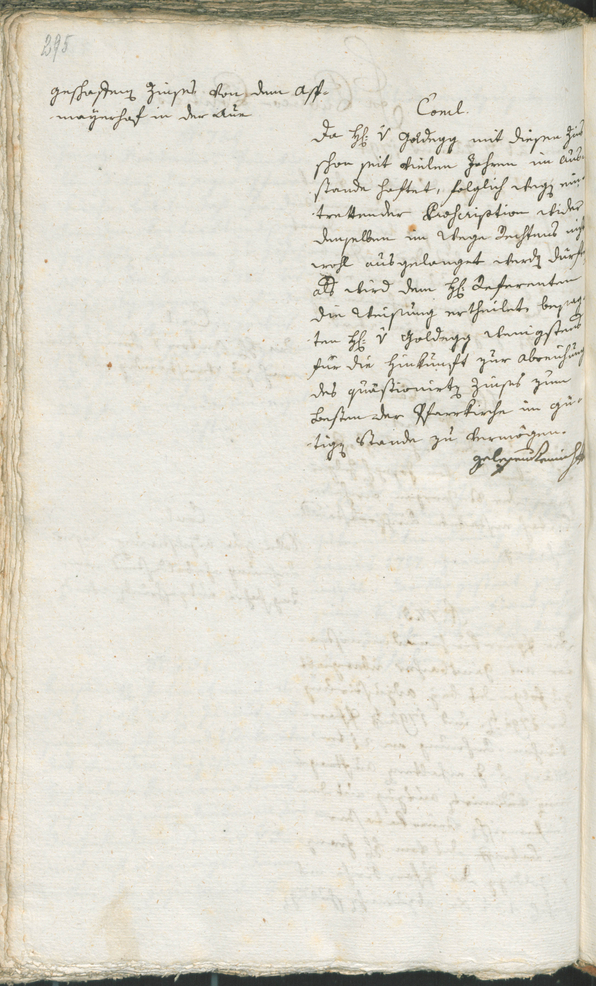 295
geschafften Zinses von dem Ass-
mayrhof in der Aue
Concl.
Da H: v Goldegg mit diesen Zins
schon seit vielen Jahren im Aus-
stande haftet, folglich wegen ein-
trettender Proscription wider
denselben im Wege Rechtens nicht
wohl ausgelanget werden dürfte
als wird dem H: Referenten
die Weisung ertheilet, besag-
ten H: v Goldegg wenigstens
für die Hinkunft zur Abreichung
des quästionirten Zinses zum
Besten der Pfarrkirche im gü-
tigen Stande zu vermögen.